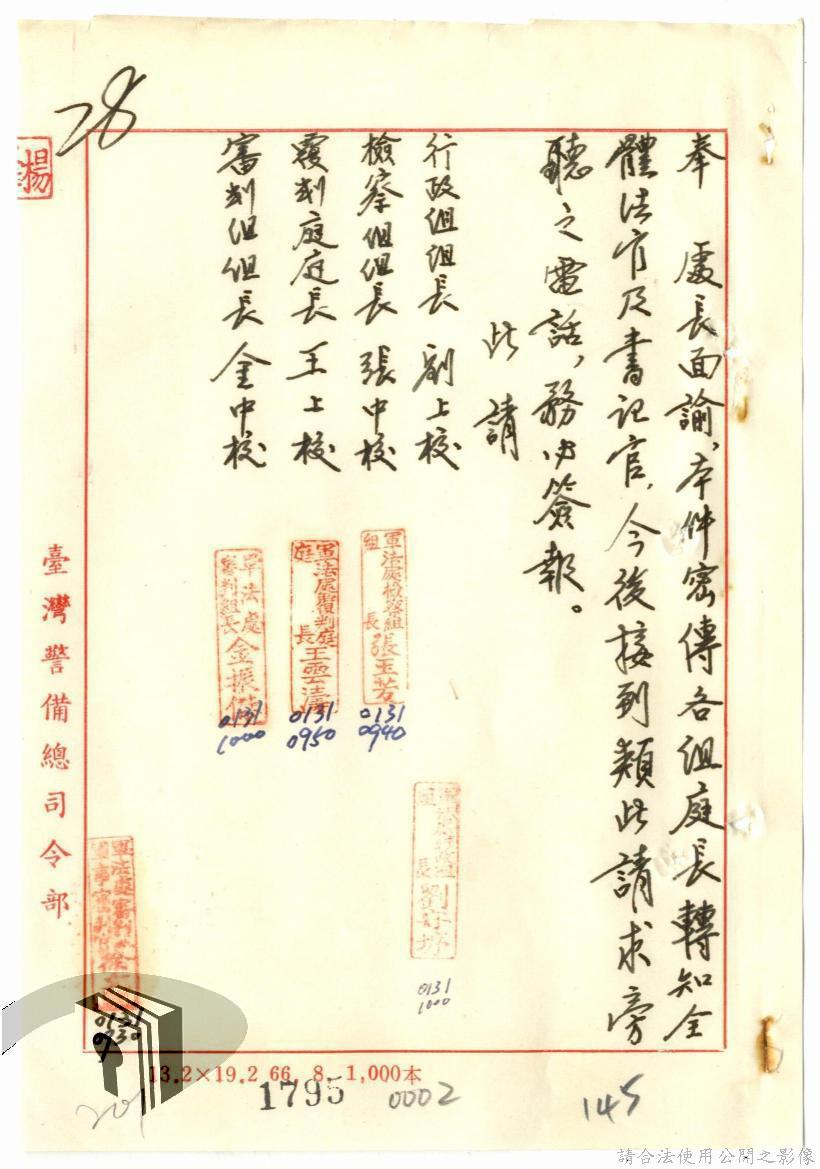 28
奉　處長面諭，本件密傳各組庭長轉知全
體法官及書記官，今後接到類此請求旁
聽之電話，務必簽報。
此請
行政組組長 劉上校
檢察組組長 張中校
覆判庭庭長 王上校
審判組組長 金中校
軍法處檢察組
組長 張玉芳
0131
0940
軍法處覆判庭
庭長 王雲濤
0131
0950
軍法處
審判組長 金振
0131
1000
劉
0131
1000
軍法處審判
0131
0930
楊
臺灣警備總司令部
13.2×19.2 66. 8. 1,000本
1795
0002
145
201
請合法使用公開之影像